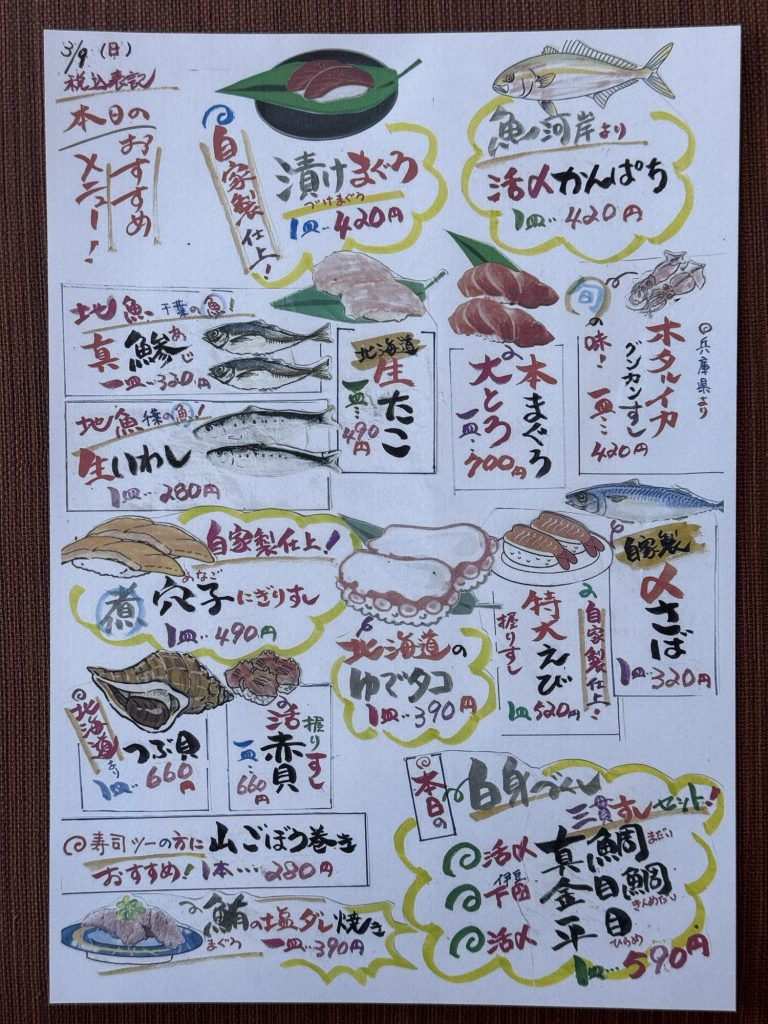 3/9 (日)
税込表記
本日の
おすすめ
メニュー!
自家製仕上!
漬けまぐろ
づけまぐろ
1皿‥420円
魚河岸より
活〆かんぱち
1皿‥420円
地魚 千葉の魚!
真鯵
あじ
一皿‥320円
地魚 千葉の魚!
生いわし
1皿‥280円
北海道
生たこ
一皿‥490円
本まぐろ
大とろ
一皿‥700円
旬の味!
ホタルイカ
グンカンすし
一皿‥420円
兵庫県より
自家製仕上!
煮穴子にぎりすし
あなご
1皿‥490円
北海道の
ゆでタコ
1皿‥390円
特大えび
握りすし
自家製仕上!
1皿520円
自家製
〆さば
1皿‥320円
北海道より
つぶ貝
1皿‥660円
活赤貝
握りすし
一皿‥660円
寿司ツーの方に
おすすめ!
山ごぼう巻き
1本‥‥280円
鮪の塩ダレ焼き
まぐろ
一皿‥390円
本日の
白身づくし
三貫すしセット!
活〆 真鯛
まだい
伊豆
下田 金目鯛
きんめだい
活〆 平目
ひらめ
1皿‥590円